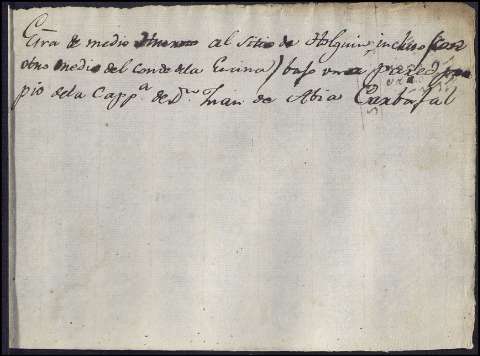 Esra de medio al sitio de Holguin incluso con
otro medio del Conde de la Encina / bajo una pared pro
pio de la Capp.ª de D.n Juan de Abia Carbajal